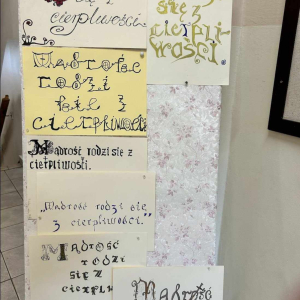 się z
cierpliwości
się z
cierpli-
wości
Mądrość
rodzi
się z
cierpliwości
Mądrość rodzi się z
cierpliwości.
„Mądrość rodzi się
z cierpliwości."
Mądrość
rodzi
się z
Mądrość